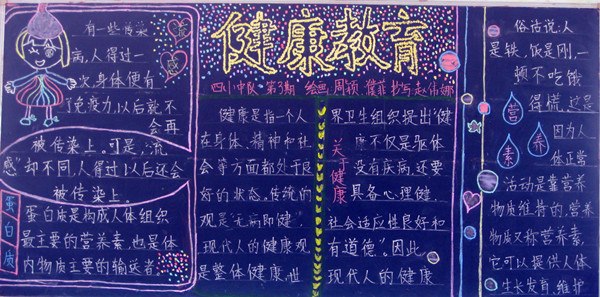 健康教育
四小中队 第3期 绘画 周颖 侯菲 书写 赵伟娜
流感
有一些传染
病,人得过一
次,身体便有
了免疫力,以后就不
会再
被传染上。可是,“流
感”却不同,人得过以后还会
被传染上。
蛋白质
蛋白质是构成人体组织
最主要的营养素,也是体
内物质主要的输送者.
健康是指一个人
在身体、精神和社
会等方面都处于良
好的状态。传统的
观是“无病即健”,
现代人的健康观
是整体健康,世
关于健康
界卫生组织提出“健
康不仅是躯体
没有疾病,还要
具备心理健、
社会适应性良好和
有道德”。因此,
现代人的健康
营养素
俗话说:人
是铁,饭是刚,一
顿不吃饿
得慌。这是
因为人
体正常
活动是靠营养
物质维持的.营养
物质又称营养素,
它可以提供人体
生长发育、维护